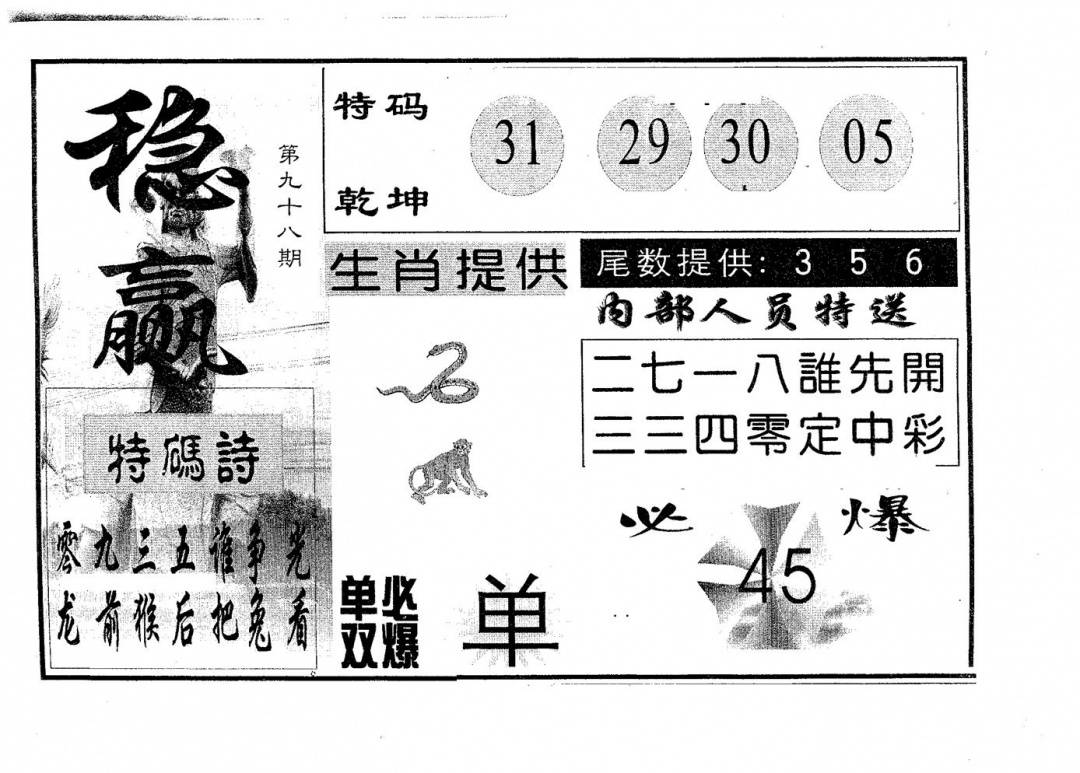 稳赢
第九十八期
特碼詩
零九三五谁争光
龙前猴后把兔看
特码
乾坤
31 29 30 05
生肖提供
单双
必爆
单
尾数提供: 3 5 6
内部人员特送
二七一八誰先開
三三四零定中彩
必爆
45